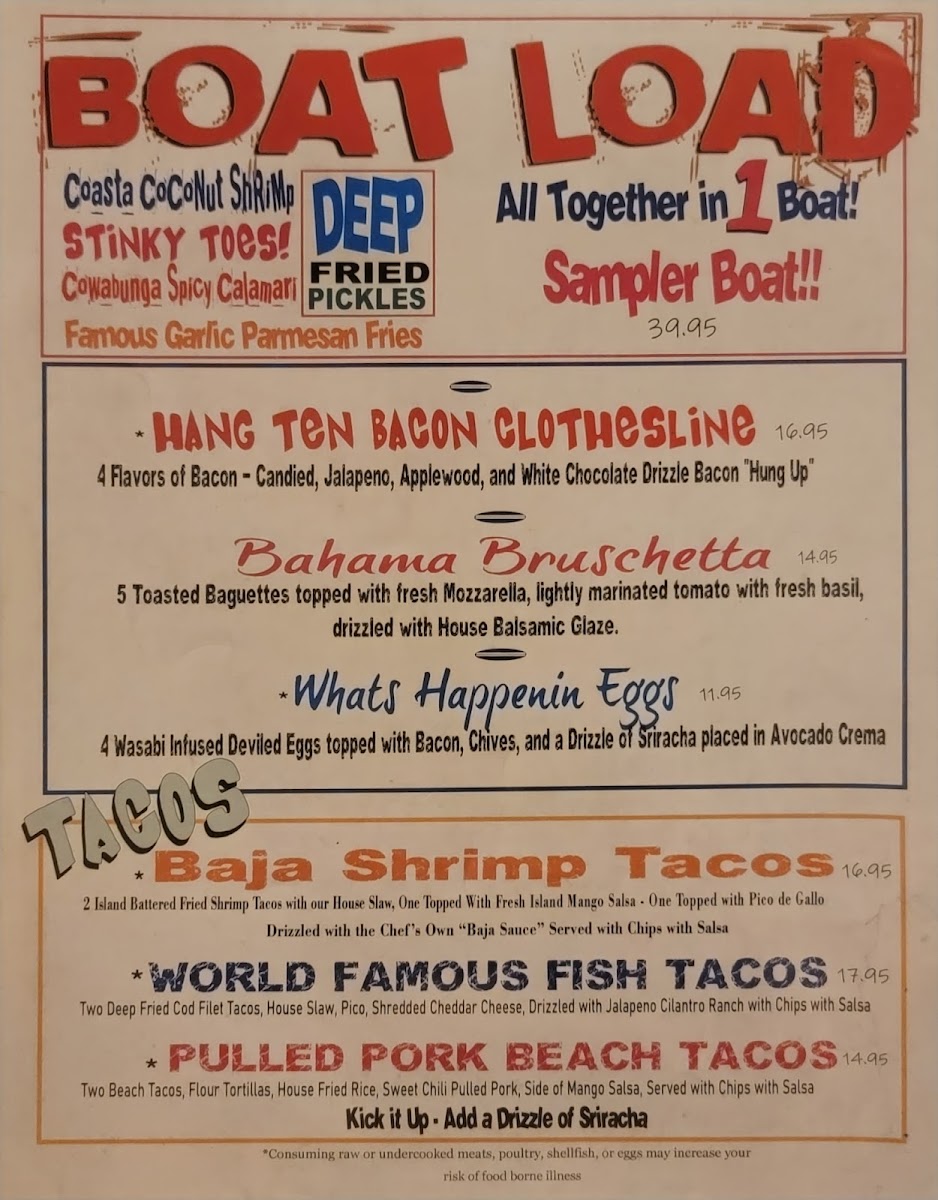 BOAT LOAD
Coasta CoCoNut ShRiMp
STiNKY TOES!
Cowabunga Spicy Calamari
Famous Garlic Parmesan Fries
DEEP
FRIED
PICKLES
All Together in 1 Boat!
Sampler Boat!!
39.95
* HANG TEN BACON CLOTHESLINE 16.95
4 Flavors of Bacon - Candied, Jalapeno, Applewood, and White Chocolate Drizzle Bacon "Hung Up"
Bahama Bruschetta 14.95
5 Toasted Baguettes topped with fresh Mozzarella, lightly marinated tomato with fresh basil,
drizzled with House Balsamic Glaze.
* Whats Happenin Eggs 11.95
4 Wasabi Infused Deviled Eggs topped with Bacon, Chives, and a Drizzle of Sriracha placed in Avocado Crema
TACOS
* Baja Shrimp Tacos 16.95
2 Island Battered Fried Shrimp Tacos with our House Slaw, One Topped With Fresh Island Mango Salsa - One Topped with Pico de Gallo
Drizzled with the Chef's Own "Baja Sauce" Served with Chips with Salsa
* WORLD FAMOUS FISH TACOS 17.95
Two Deep Fried Cod Filet Tacos, House Slaw, Pico, Shredded Cheddar Cheese, Drizzled with Jalapeno Cilantro Ranch with Chips with Salsa
* PULLED PORK BEACH TACOS 14.95
Two Beach Tacos, Flour Tortillas, House Fried Rice, Sweet Chili Pulled Pork, Side of Mango Salsa, Served with Chips with Salsa
Kick it Up - Add a Drizzle of Sriracha
*Consuming raw or undercooked meats, poultry, shellfish, or eggs may increase your
risk of food borne illness